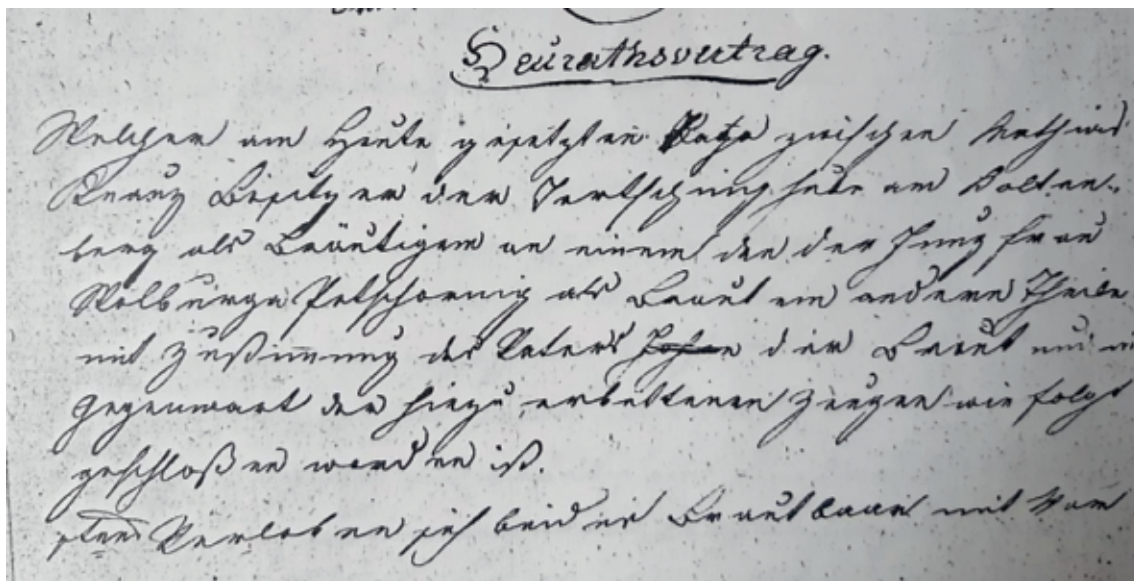 Heurathsvertrag.
Welcher am Heute gesetzten zwischen Mathias
Besitzer der am Kolten-
berg als Bräutigam an einem den der Jungfrau
Walburga Petschornig als Braut am andern Theile
mit Zustimmung des Vaters der Braut und in
Gegenwart der hiezu erbettenen Zeugen wie folgt
geschloßen worden ist.
Verloben sich beide Brautbaar mit